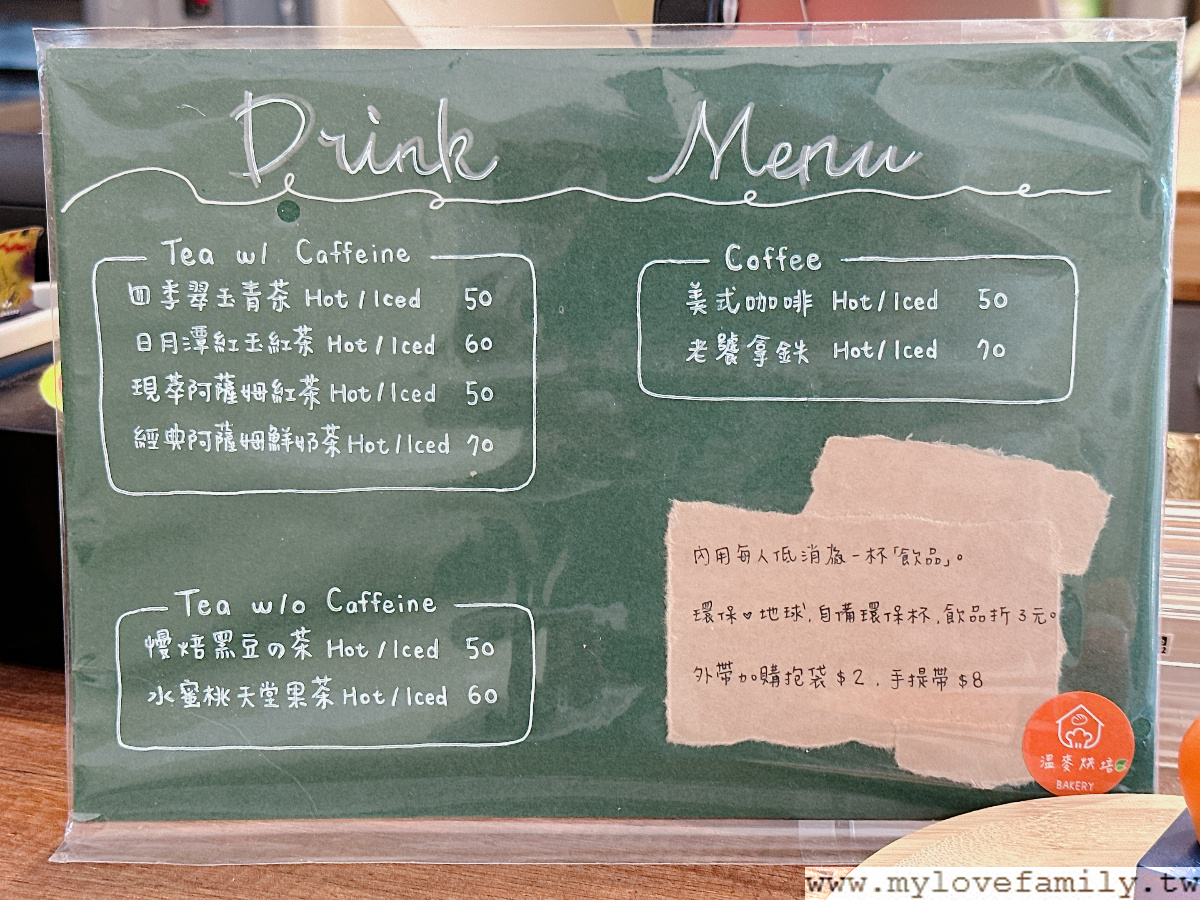 Drink Menu
Tea w/ Caffeine
四季翠玉青茶 Hot/Iced 50
日月潭紅玉紅茶 Hot/Iced 60
現萃阿薩姆紅茶 Hot/Iced 50
經典阿薩姆鮮奶茶 Hot/Iced 70
Tea w/o Caffeine
慢焙黑豆の茶 Hot/Iced 50
水蜜桃天堂果茶 Hot/Iced 60
Coffee
美式咖啡 Hot/Iced 50
老饕拿鉄 Hot/Iced 70
內用每人低消為一杯「飲品」。
環保♥地球,自備環保杯,飲品折3元。
外帶加購抱袋$2,手提帶$8
溫麥烘培
BAKERY
www.mylovefamily.tw